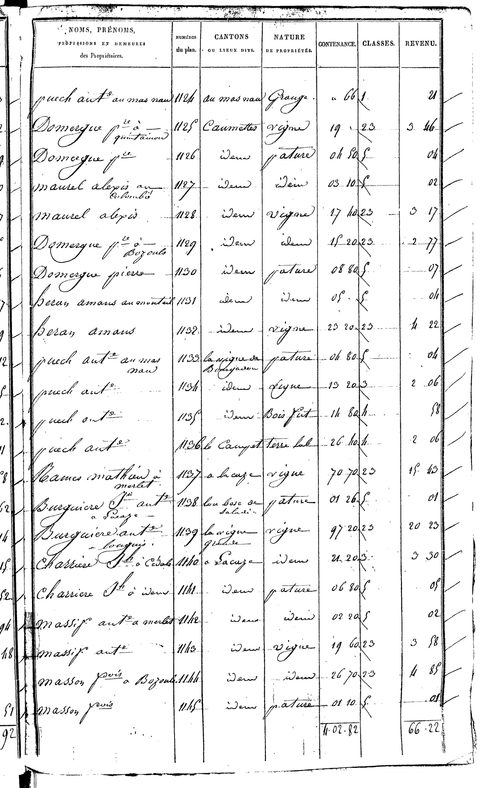 NOMS, PRÉNOMS, PROFESSIONS ET DEMEURES des Propriétaires. NUMÉROS du plan. CANTONS OU LIEUX DITS. NATURE DE PROPRIÉTÉS. CONTENANCE. CLASSES. REVENU.
puech antne au mas nau 1124 au mas nau Grange. " 66 1 21
Domergue pre à quintainou 1125 Caumettes vigne 19 " 23 3 46
Domergue pre 1126 idem pature 04 50 5 04
maurel alexis au Colombié 1127 idem idem 03 10 5 02
maurel alexis 1128 idem vigne 17 40 23 3 17
Domergue pre à Bozouls 1129 idem idem 15 20 23 2 77
Domergue pierre 1130 idem pature 08 80 5 07
heran amans au monteil 1131 idem idem 05 " 5 04
heran amans 1132 idem vigne 23 20 23 4 22
puech antne au mas nau 1133 la vigne de pature 04 80 5 04
puech antne 1134 idem vigne 13 20 3 2 06
puech antne 1135 idem Bois fut 14 80 4 58
puech antne 1136 le Campet terre lab 26 40 4 2 06
Rames mathieu à merlet 1137 a lacaze vigne 70 70 23 15 43
Burguiere Jn antne a Lacaze 1138 pature 01 26 5 01
Burguiere antne 1139 la vigne grande vigne 97 20 23 20 23
Charriere Jh à 1140 a Lacaze idem 21 20 3 3 30
Charriere Jh à idem 1141 idem pature 06 80 5 05
massif antne a merlet 1142 idem idem 02 20 5 02
massif antne 1143 idem vigne 19 60 23 3 58
masson pois a Bozouls 1144 idem idem 26 70 23 4 85
masson pois 1145 idem pature 01 10 5 01
4.02.82 66.22